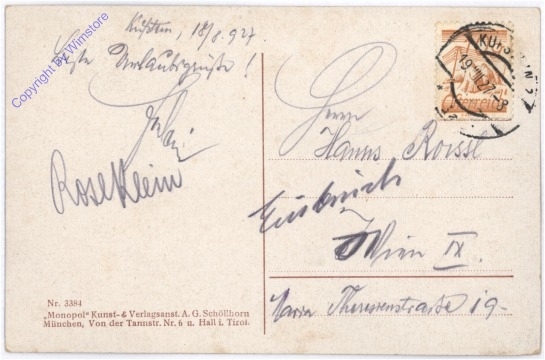 Kufstein, 18/8. 927
Beste Urlaubsgrüße!
Rose Klein
Nr. 3384
„Monopol" Kunst- & Verlagsanst. A. G. Schöllhorn
München, Von der Tannstr. Nr. 6 u. Hall i. Tirol.
KUFSTEIN 2
19. VIII. 27
Österreich
Herrn
Hanns Roissl
Wien IX.
Maria Theresienstraße 19-
copyright by Wimstore